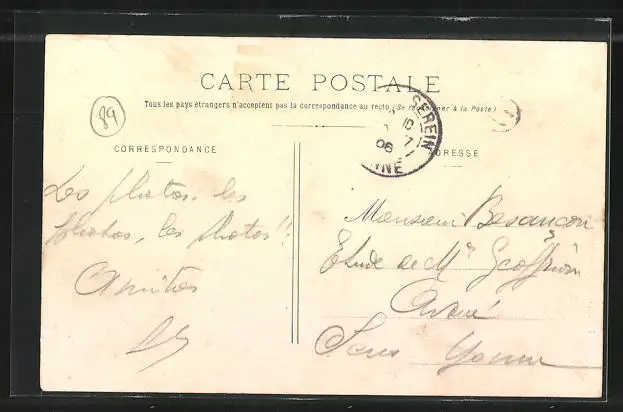 CARTE POSTALE
Tous les pays étrangers n'acceptent pas la correspondance au recto (Se renseigner à la Poste)
89
SEREIN
10
7
06
NNE
CORRESPONDANCE
ADRESSE
Les photos, les
photos, les photos!!
Amitiés
Monsieur Besançon
Etude de Me Geoffrion
Avoué
Sens Yonne